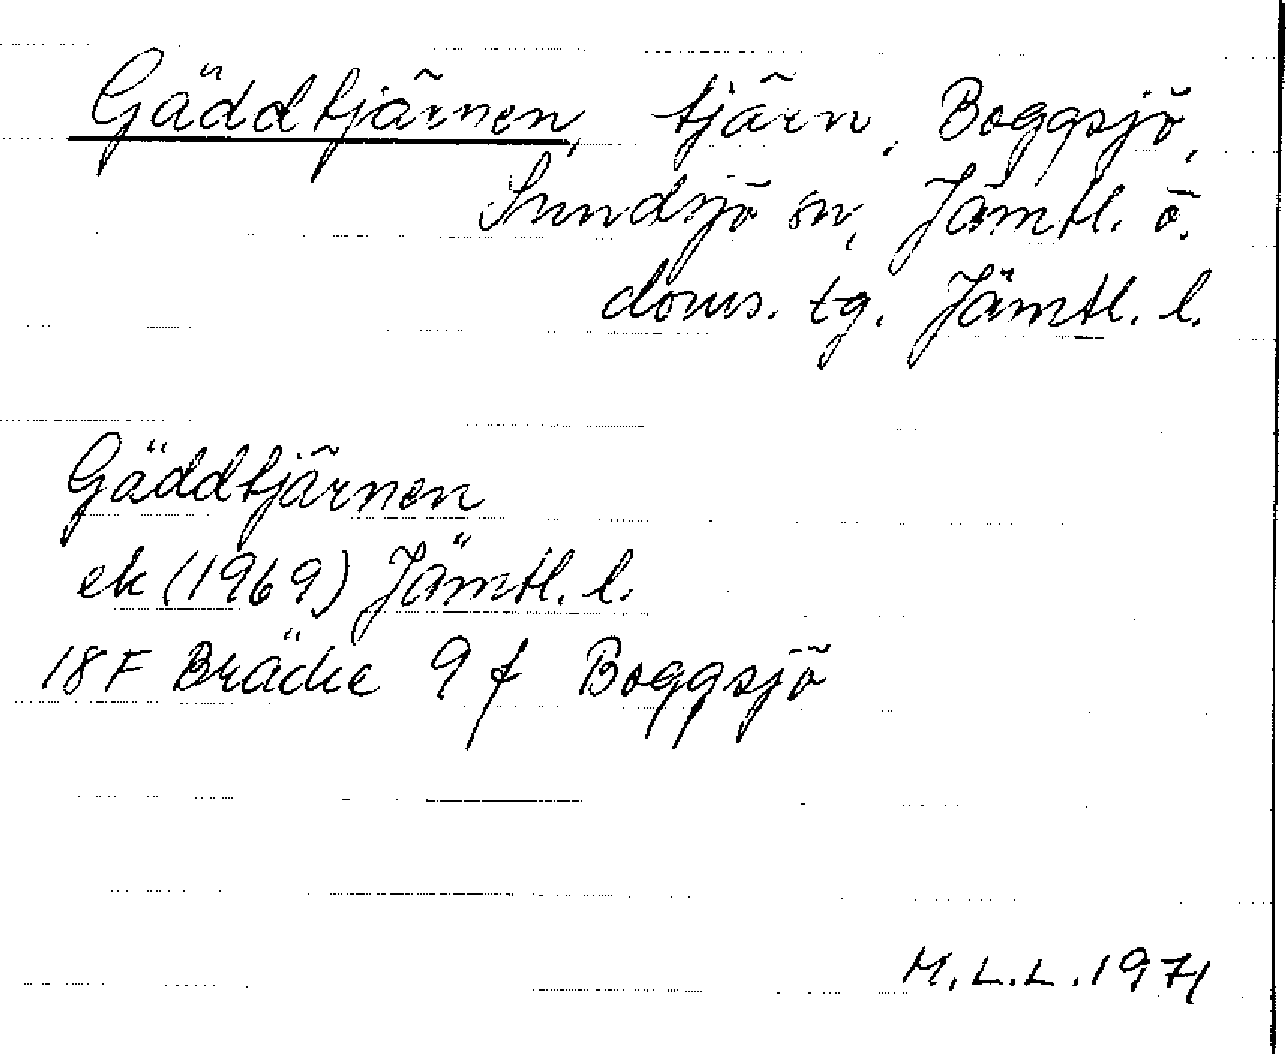 Gäddtjärnen, tjärn, Boggsjö,
Sundsjö sn, Jämtl. ö.
doms. tg. Jämtl. l.
Gäddtjärnen
ek (1969) Jämtl. l.
18 F Bräcke 9 f Boggsjö
M.L.L. 1971